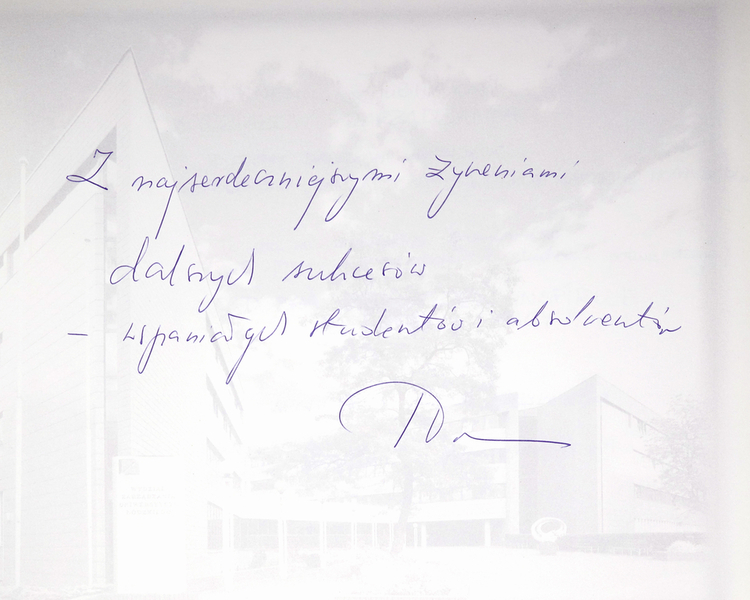 Z najserdeczniejszymi życzeniami
dalszych sukcesów
- wspaniałych studentów i absolwentów